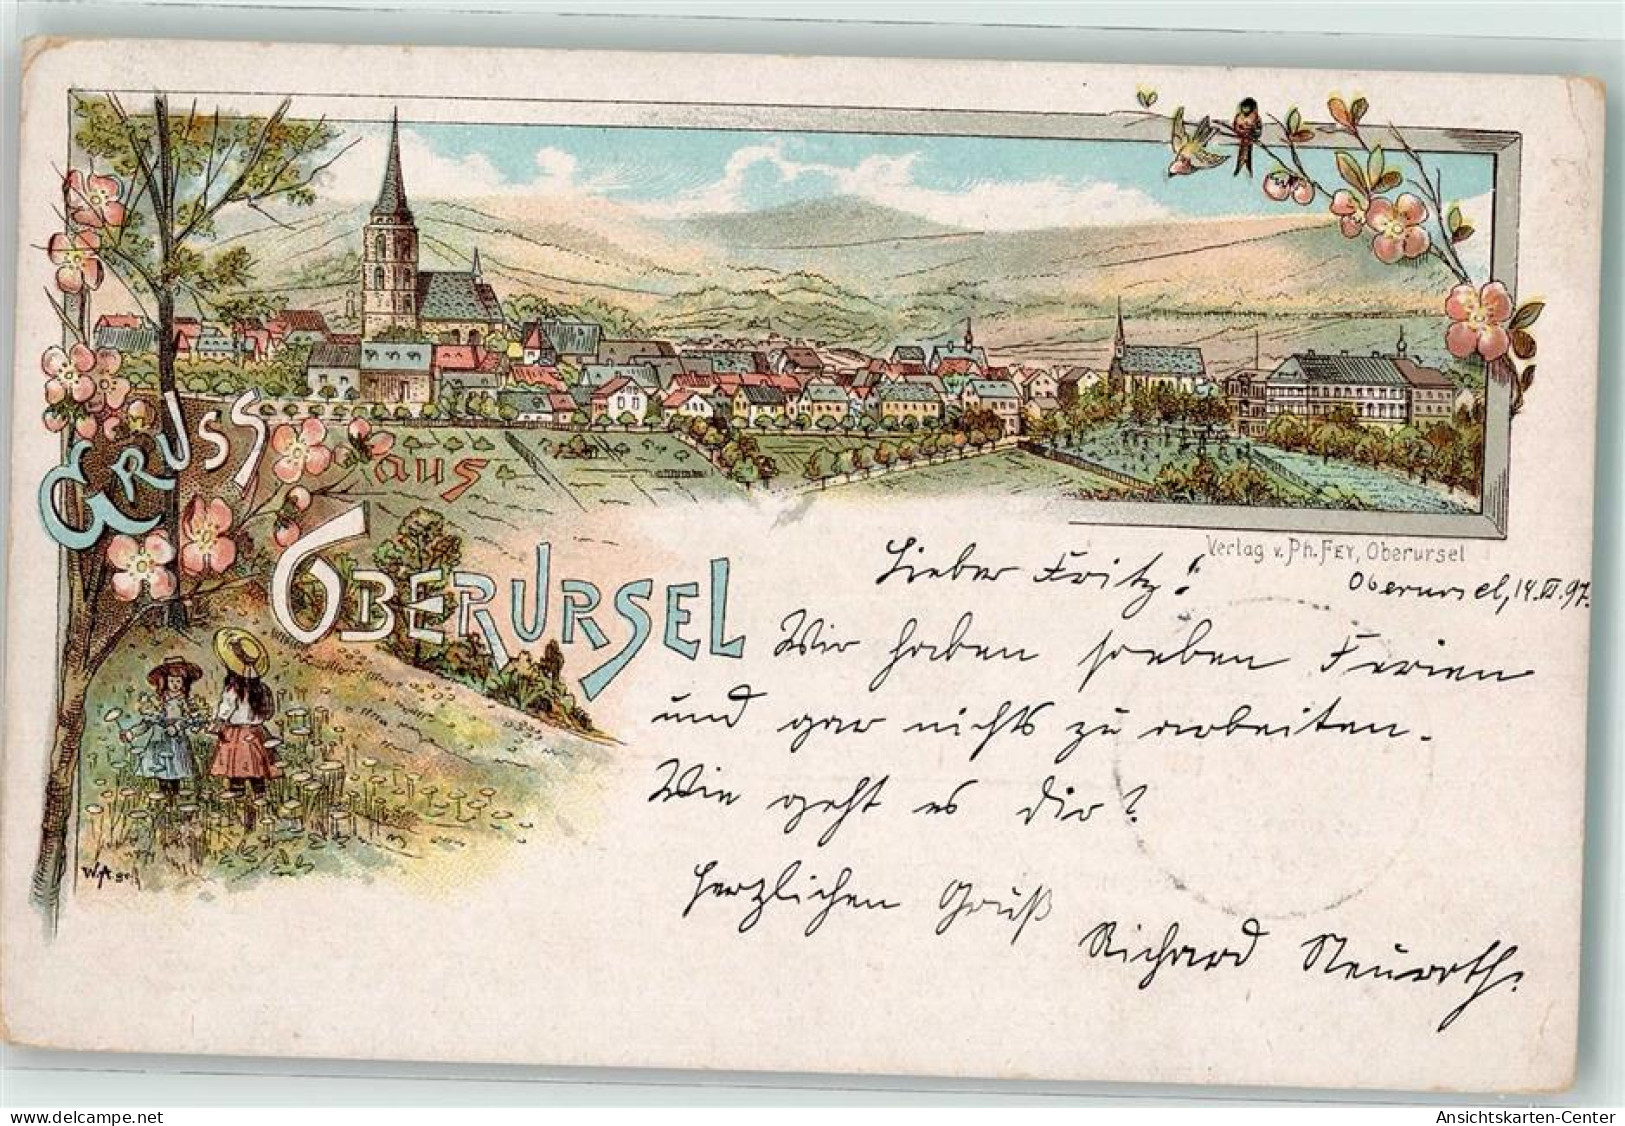 GRUSS
aus
OBERURSEL
Verlag v. Ph. FEY, Oberursel
Oberursel, 14.VI.97.
Lieber Fritz!
Wir haben soeben Ferien
und gar nichts zu arbeiten.
Wie geht es dir?
Herzlichen Gruß
Richard Neuroth.
delcampe.net
Ansichtskarten-Center